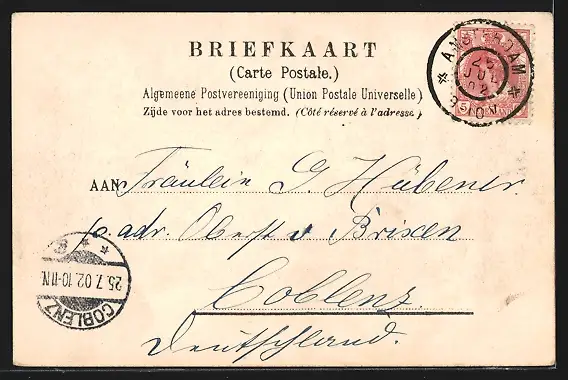 BRIEFKAART
(Carte Postale.)
Algemeene Postvereeniging (Union Postale Universelle)
Zijde voor het adres bestemd. (Côté réservé à l'adresse.)
AMSTERDAM
25
JUL
02
9-10V
5
AAN Fräulein G. Hübener.
p. adr. Oberst v Brixen
Coblenz.
Deutschland.
COBLENZ
25.7.02.10-11N.